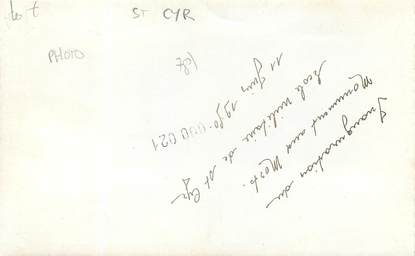 lot
ST CYR
PHOTO
Inauguration du
Monument aux Morts.
Ecole militaire de St Cyr
11 Juin 19
000 021